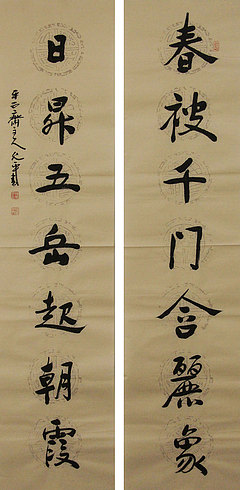 春被千门含麗象
日昇五岳起朝霞